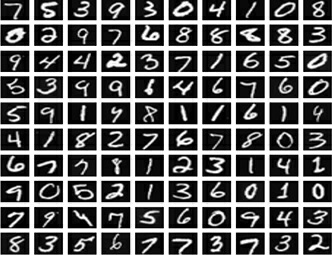 7 5 3 9 3 0 4 1 0 8
0 2 9 7 6 8 8 8 8 3
9 4 4 2 3 7 1 6 5 0
5 3 9 9 6 4 6 7 6 0
5 9 1 4 8 1 1 6 1 9
4 1 8 2 7 6 7 8 0 3
6 7 7 8 1 2 3 1 4 1
9 0 5 2 1 3 6 0 1 0
7 9 4 7 5 6 0 9 4 3
8 3 5 6 7 7 3 7 3 2